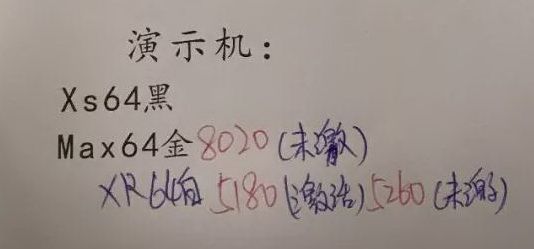 演示机：
Xs64黑
Max64金8020(未激)
XR64白 5180(激活)5260(未激)